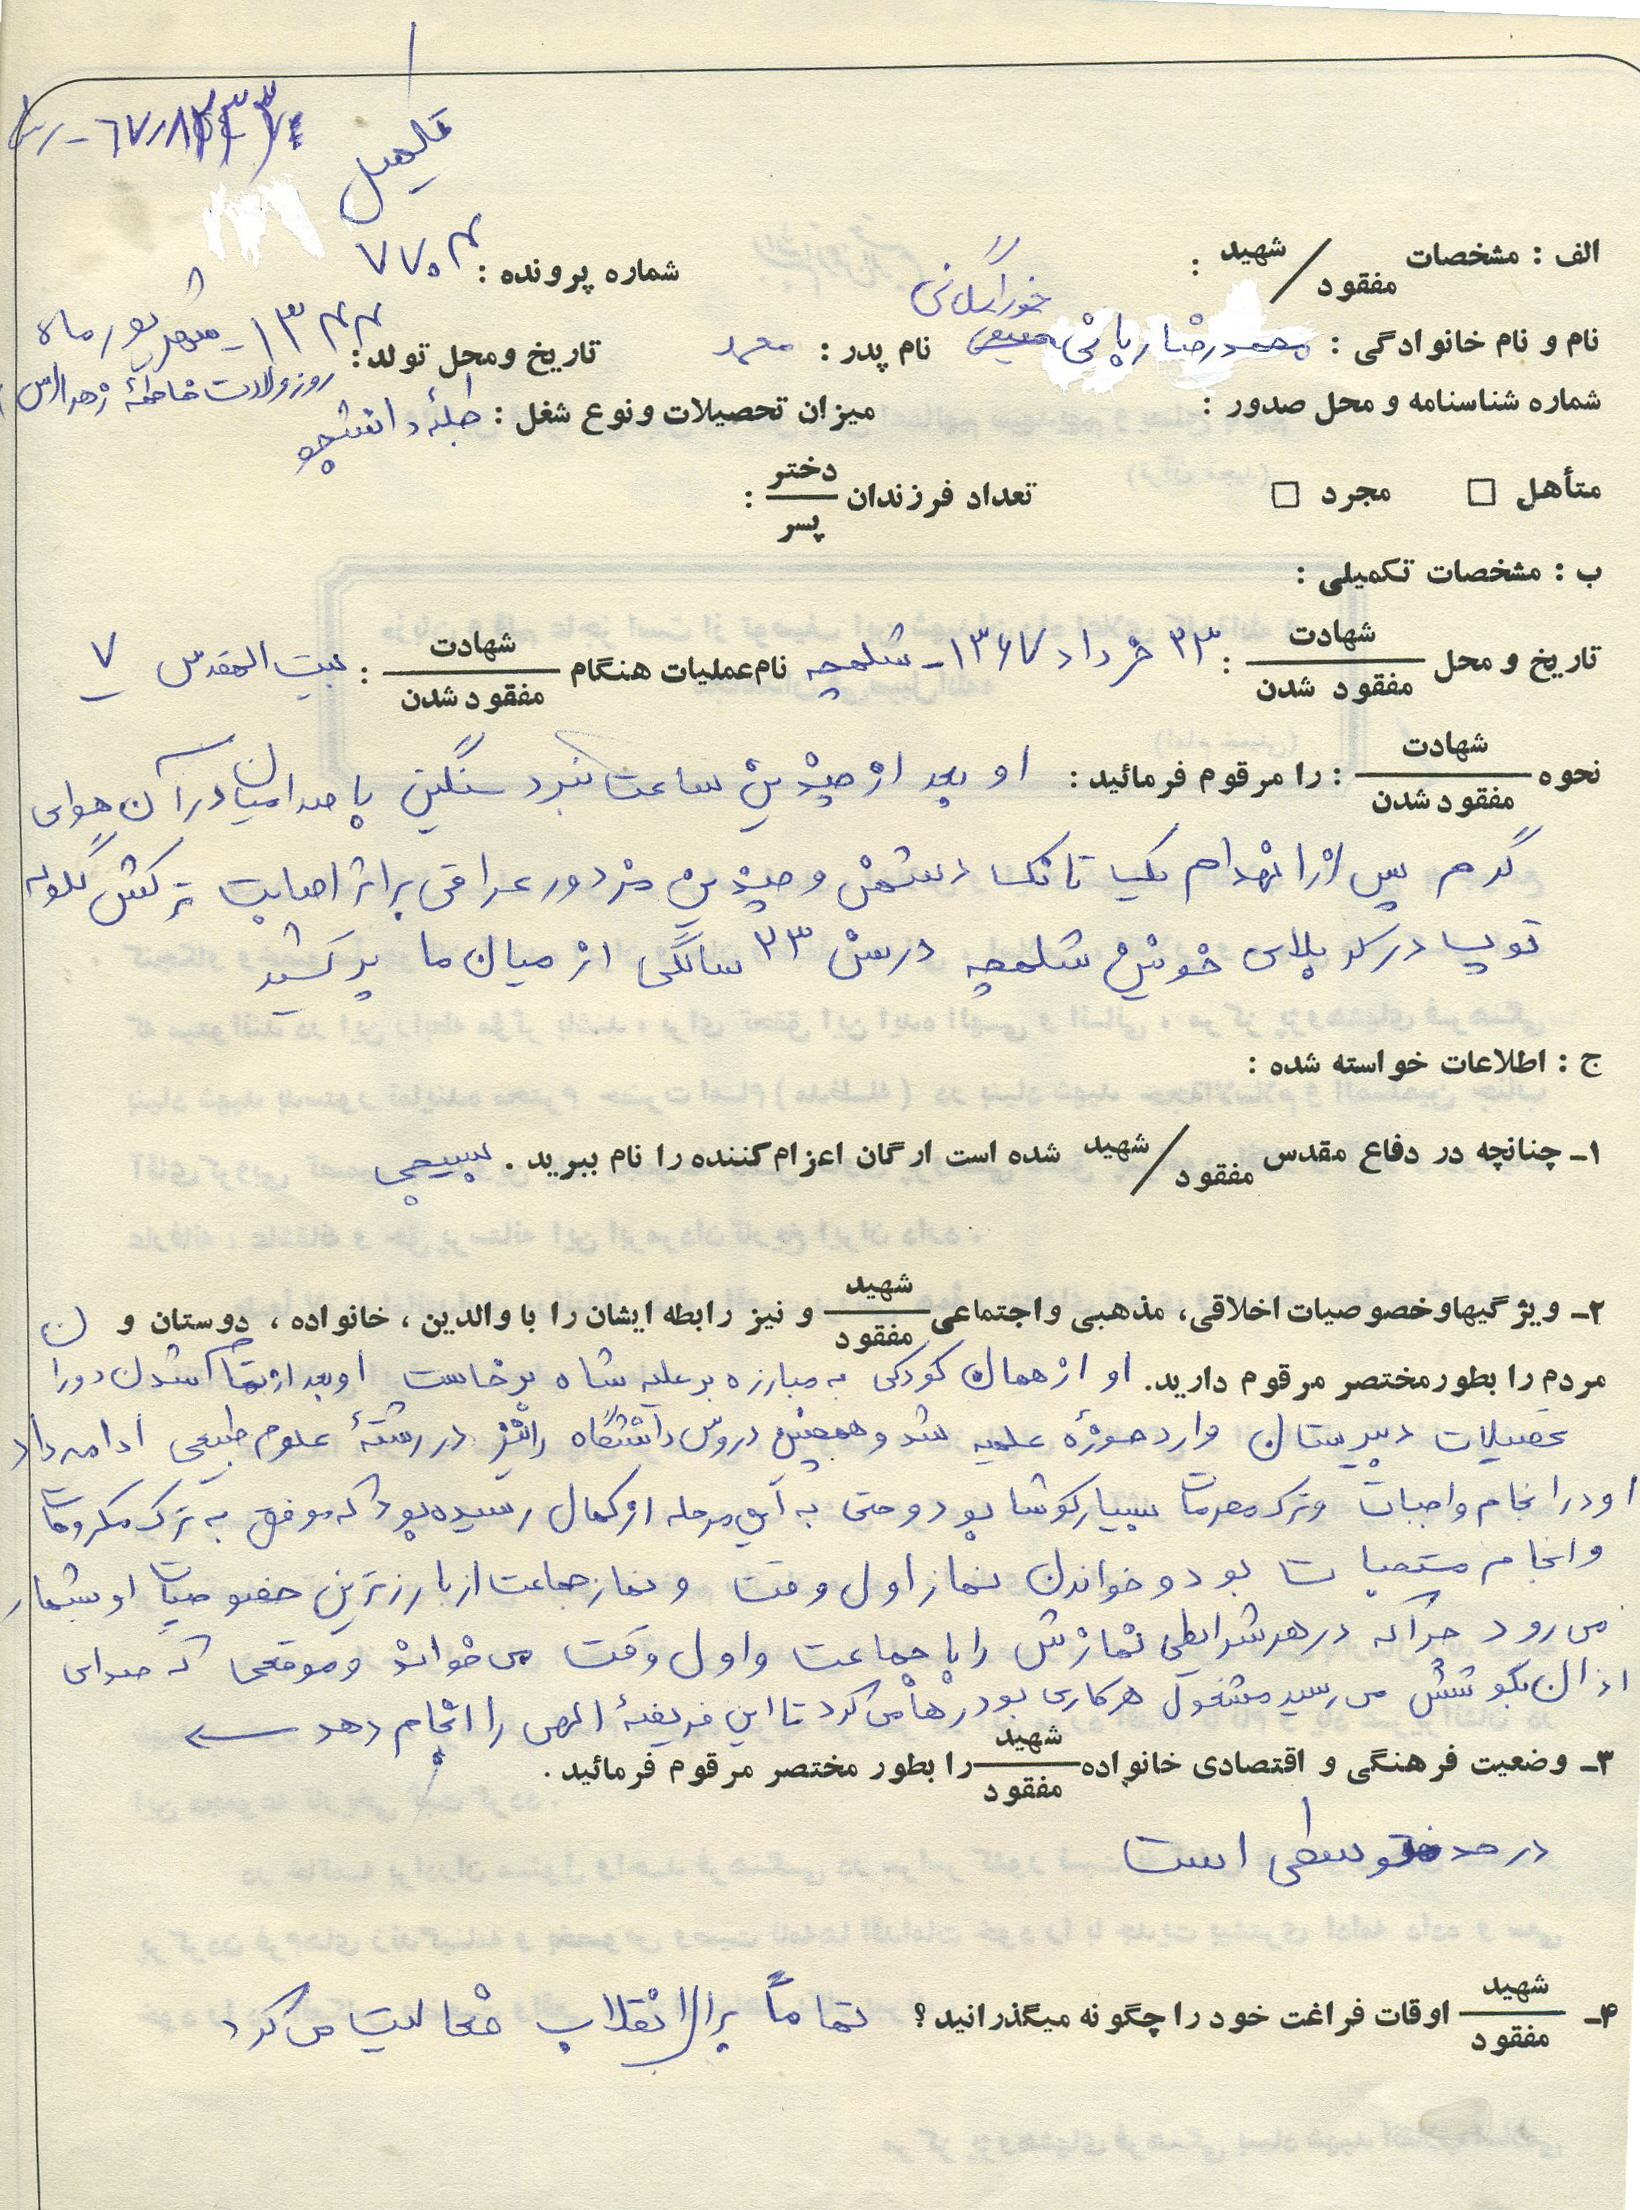 تکمیل
الف : مشخصات شهید / مفقود :
شماره پرونده : ۷۷۰۴
خوراسگانی
نام و نام خانوادگی : محمدرضا ربانی
نام پدر : محمد
تاریخ و محل تولد : ۱۳۴۴ - شهریور ماه
روز ولادت فاطمهٔ زهرا (س)
شماره شناسنامه و محل صدور :
میزان تحصیلات و نوع شغل : طلبه و دانشجو
متأهل □ مجرد □ تعداد فرزندان دختر / پسر :
ب : مشخصات تکمیلی :
تاریخ و محل شهادت / مفقود شدن : ۲۳ خرداد ۱۳۶۷ - شلمچه نام عملیات هنگام شهادت / مفقود شدن : بیت المقدس ۷
نحوه شهادت / مفقود شدن : را مرقوم فرمائید : او بعد از چندین ساعت نبرد سنگین با صدامیان در آن هوای
گرم پس از انهدام یک تانک دشمن و چندین مزدور عراقی بر اثر اصابت ترکش گلوله
توپ در کربلای خونین شلمچه در سن ۲۳ سالگی از میان ما پر کشید
ج : اطلاعات خواسته شده :
۱- چنانچه در دفاع مقدس شهید / مفقود شده است ارگان اعزام کننده را نام ببرید . بسیجی
۲- ویژگیها و خصوصیات اخلاقی، مذهبی و اجتماعی شهید / مفقود و نیز رابطه ایشان را با والدین ، خانواده ، دوستان و
مردم را بطور مختصر مرقوم دارید. او از همان کودکی به مبارزه بر علیه شاه برخاست او بعد از تمام شدن دوران
تحصیلات دبیرستان وارد حوزهٔ علمیه شد و همچنین دروس دانشگاه را نیز در رشتهٔ علوم طبیعی ادامه داد
او در انجام واجبات و ترک محرمات بسیار کوشا بود و حتی به این مرحله از کمال رسیده بود که موفق به ترک مکروهات
و انجام مستحبات بود و خواندن نماز اول وقت و نماز جماعت از بارزترین خصوصیات او بشمار
می رود چرا که در هر شرایطی نمازش را با جماعت و اول وقت می خواند و موقعی که صدای
اذان بگوشش می رسید مشغول هر کاری بود رها می کرد تا این فریضهٔ الهی را انجام دهد ←
۳- وضعیت فرهنگی و اقتصادی خانواده شهید / مفقود را بطور مختصر مرقوم فرمائید .
در حد متوسطی است
۴- شهید / مفقود اوقات فراغت خود را چگونه میگذرانید ؟ تماماً برای انقلاب فعالیت می کرد